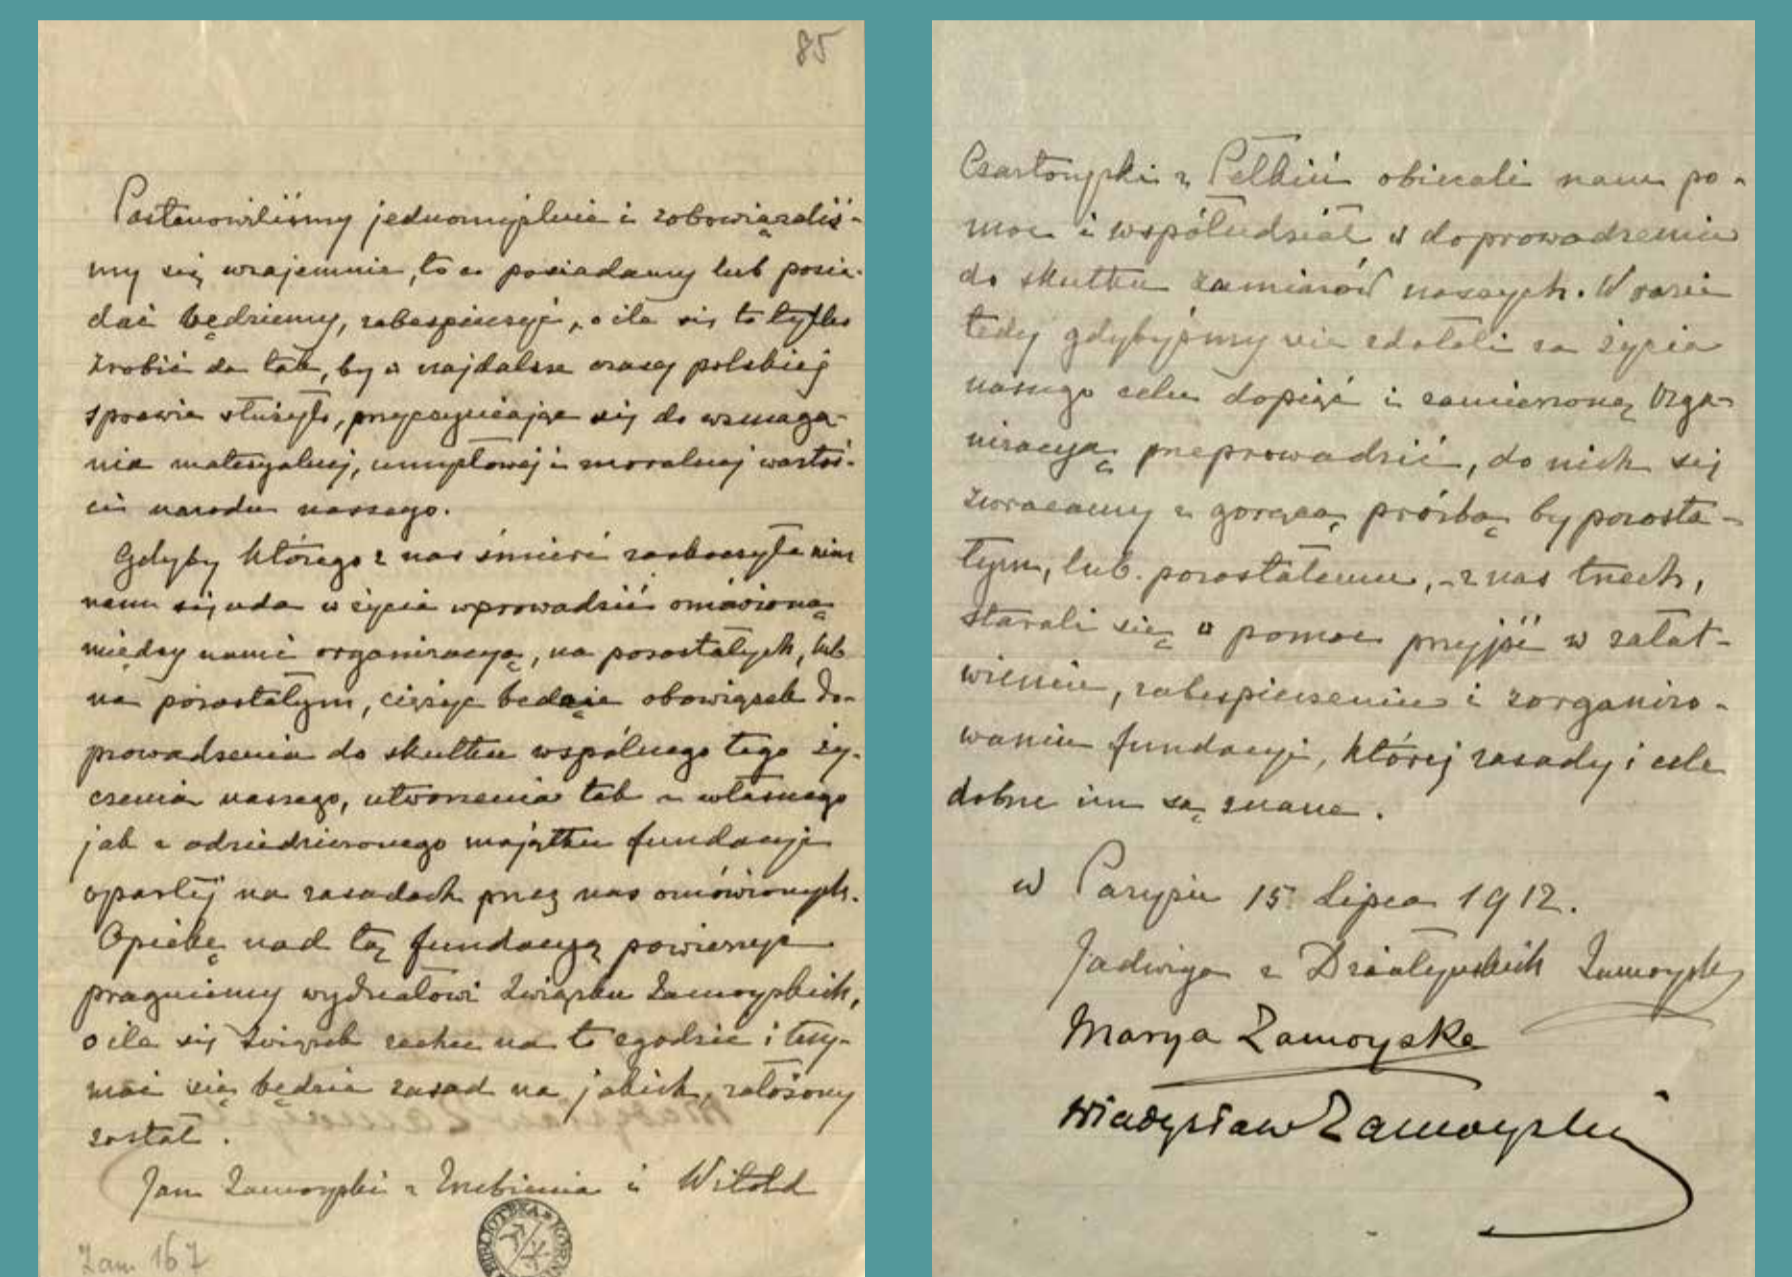 85
Postanowiliśmy jednomyślnie i zobowiązaliś-
my się wzajemnie, to co posiadamy lub posia-
dać będziemy, zabezpieczyć, o ile się to tylko
zrobić da tak, by w najdalsze czasy polskiej
sprawie służyło, przyczyniając się do wzmaga-
nia materyalnej, umysłowej i moralnej wartoś-
ci narodu naszego.
Gdyby którego z nas śmierć zaskoczyła nim
nam się uda w życie wprowadzić omówioną
między nami organizacyą, na pozostałych, lub
na pozostałym, ciężyć będzie obowiązek do-
prowadzenia do skutku wspólnego tego ży-
czenia naszego, utworzenia tak z własnego
jak z odziedziczonego majątku fundacyi
opartej na zasadach przez nas omówionych.
Opiekę nad tą fundacyą powierzyć
pragniemy wydziałowi Związku Zamoyskich,
o ile się Związek zechce na to zgodzić i trzy-
mać się będzie zasad na jakich założony
został.
Jan Zamoyski z Trzebienia i Witold
Zam 167
BIBLIOTEKA KÓRN
Czartoryski z Pełkiń obiecali nam po-
moc i współudział w doprowadzeniu
do skutku zamiarów naszych. W razie
tedy gdybyśmy nie zdołali za życia
naszego celu dopiąć i zamierzoną orga-
nizacyą przeprowadzić, do nich się
zwracamy z gorącą prośbą by pozosta-
łym, lub pozostałemu, z nas trzech,
starali się w pomoc przyjść w załat-
wieniu, zabezpieczeniu i zorganizo-
waniu fundacyi, której zasady i cele
dobrze im są znane.
w Paryżu 15 Lipca 1912.
Jadwiga z Działyńskich Zamoyska
Marya Zamoyska
Władysław Zamoyski